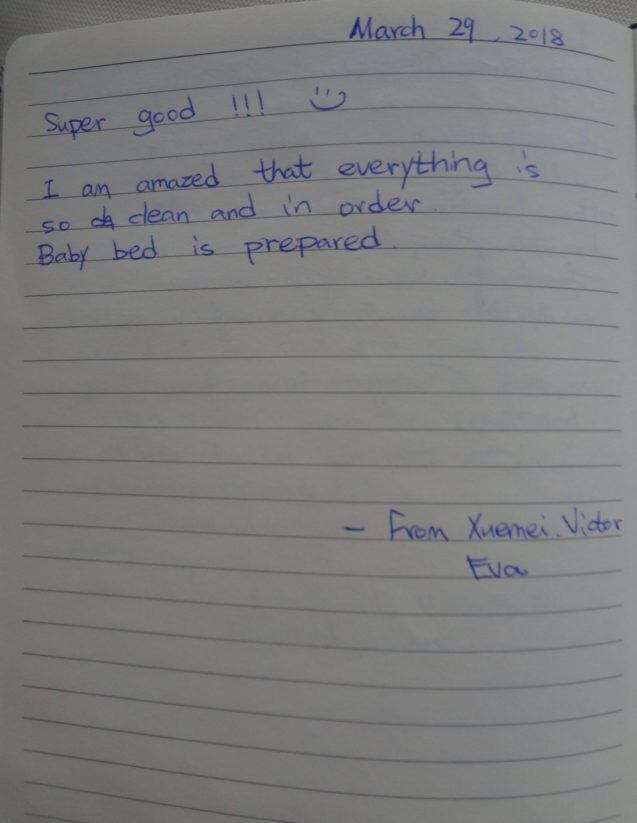 March 29, 2018
Super good !!!
I am amazed that everything is
so clean and in order.
Baby bed is prepared.
- From Xuemei. Victor
Eva